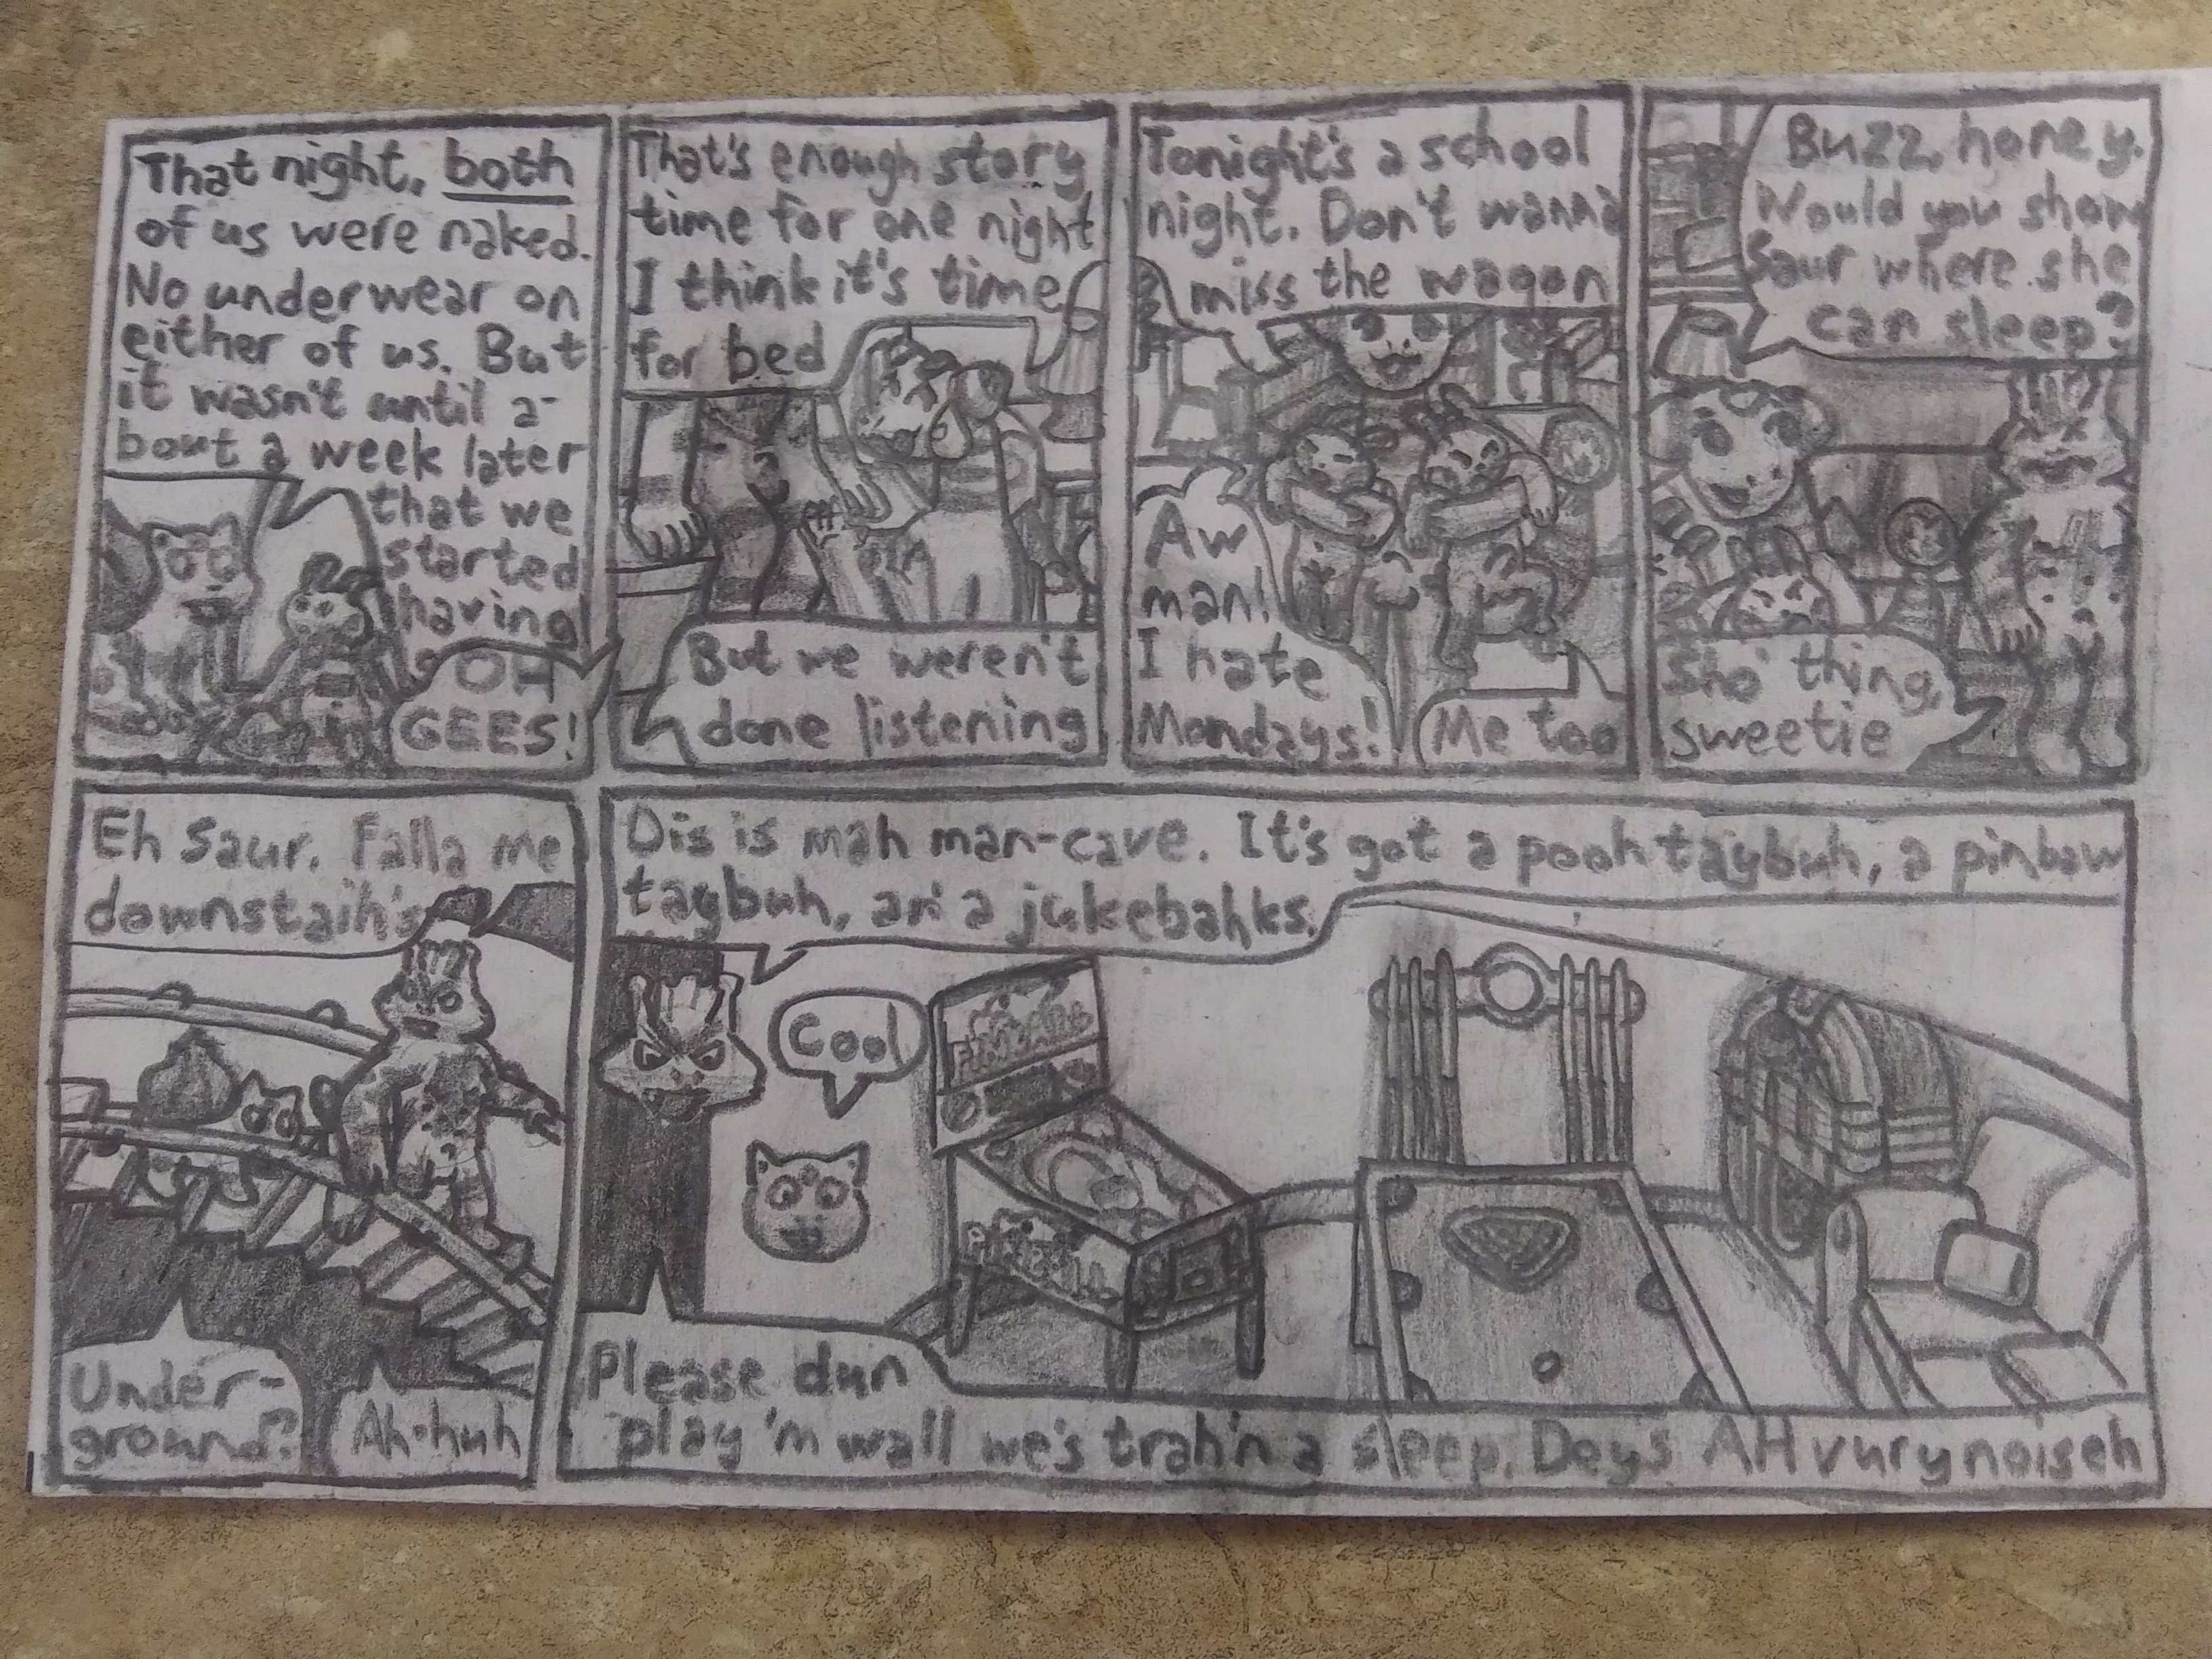 That night, both
of us were naked.
No underwear on
either of us. But
it wasn't until a-
bout a week later
that we
started
having
OH
GEES!
That's enough story
time for one night
I think it's time
for bed
But we weren't
done listening
Tonight's a school
night. Don't wanna
miss the wagon
Aw
man!
I hate
Mondays!
Me too
Buzz, honey.
Would you show
Saur where she
can sleep?
Sho' thing,
sweetie
Eh Saur. Falla me
downstaih's
Under-
ground?
Ah-huh
Dis is mah man-cave. It's got a pooh taybuh, a pinbaw
taybuh, an' a jukebahks.
Cool
Please dun
play 'm wall we's trah'n a sleep. Deys AH vury noiseh